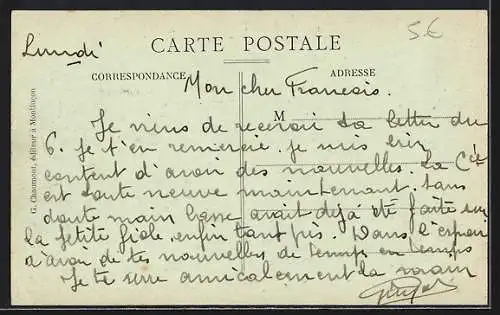 Lundi
5€
CARTE POSTALE
CORRESPONDANCE
ADRESSE
Mon cher Francois.
M
Je viens de recevoir ta lettre du
6. Je t'en remercie. Je suis bien
content d'avoir des nouvelles. La Cie
est toute neuve maintenant. Sans
doute main basse avait déjà été faite sur
la petite fiole. enfin tant pis. Dans l'espoir
d'avoir de tes nouvelles de temps en temps
Je te serre amicalement la main
G. Chaumont, éditeur à Montluçon